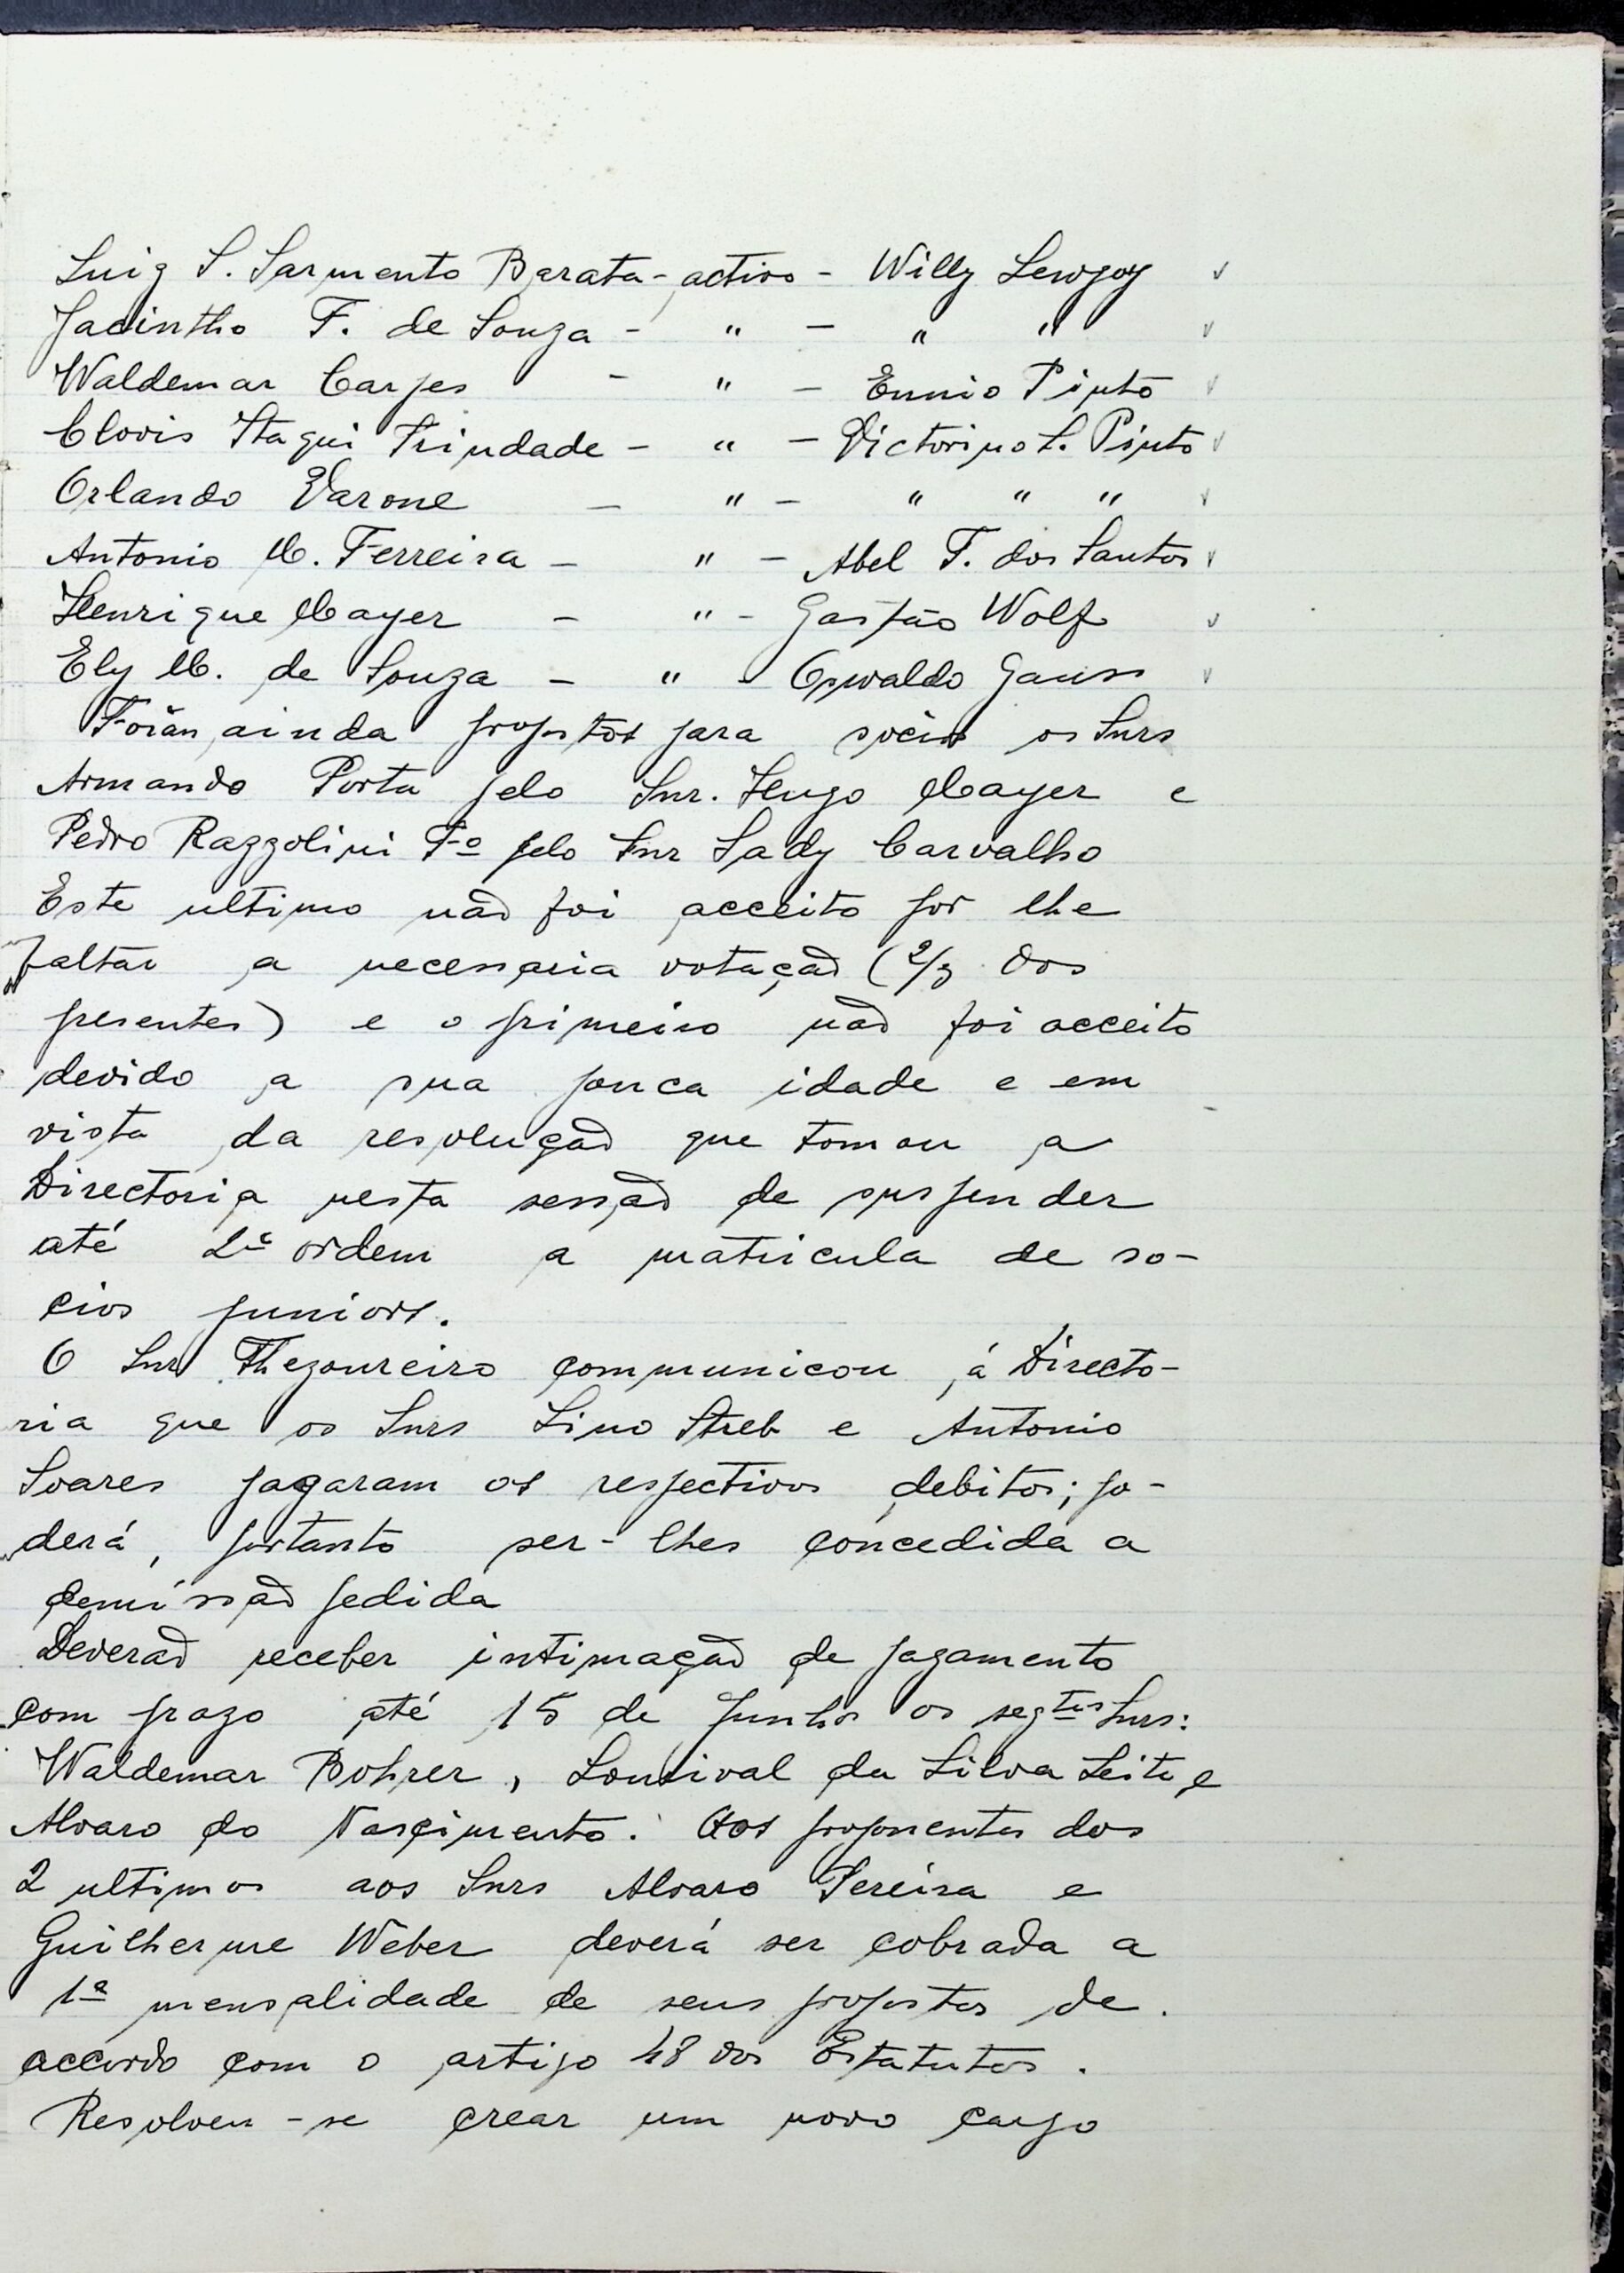 Luiz S. Sarmento Barata - activo - Willy Lewgoy ✓
Jacintho F. de Souza - " - " " ✓
Waldemar Carpes - " - Ennio Pinto ✓
Clovis Itaqui Trindade - " - Victorino S. Pinto ✓
Orlando Varone - " - " " " ✓
Antonio M. Ferreira - " - Abel F. dos Santos ✓
Henrique Mayer - " - Gastão Wolf ✓
Ely M. de Souza - " - Oswaldo Gauss ✓
Forão ainda propostos para socios os Snrs
Armando Porta pelo Snr. Hugo Mayer e
Pedro Razzolini Fº pelo Snr Lady Carvalho
Este ultimo não foi acceito por lhe
faltar a necessaria votação (2/3 dos
presentes) e o primeiro não foi acceito
devido a sua pouca idade e em
vista da resolução que tomou a
Directoria nesta sessão de suspender
até 2ª ordem a matricula de so-
cios juniors.
O Snr Thezoureiro communicou á Directo-
ria que os Snrs Lino Streb e Antonio
Soares pagaram os respectivos debitos; po-
derá, portanto ser-lhes concedida a
demissão pedida
Deverão receber intimação de pagamento
com prazo até 15 de Junho os segtes Snrs:
Waldemar Bohrer, Lourival da Silva Leite e
Alvaro do Nascimento. Aos proponentes dos
2 ultimos aos Snrs Alvaro Pereira e
Guilherme Weber deverá ser cobrada a
1ª mensalidade de seus propostos de
accordo com o artigo 48 dos Estatutos.
Resolveu-se crear um novo cargo